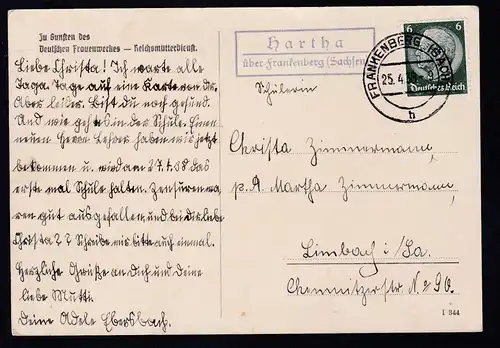 Zu Gunsten des
Deutschen Frauenwerkes — Reichsmütterdienst.
Liebe Christa! Ich warte alle
Tage auf eine Karte von dir.
Aber leider. Bist du noch gesund.
Und wie geht es in der Schule. Einen
neuen Herrn Lehrer haben wir jetzt
bekommen u. wird am 27.4.38 das
erste mal Schule halten. Zensuren wa,
ren gut ausgefallen, und bei dir liebe
Christa?? Schreibe mir bitte auch einmal.
Herzliche Grüße an Dich und Deine
liebe Mutti.
Deine Adele Ebersbach.
Hartha
über Frankenberg (Sachsen)
FRANKENBERG (SACHS)
25.4.
h
6 6
Deutsches Reich
Schülerin
Christa Zimmermann,
p. A. Martha Zimmermann,
Limbach i/Sa.
Chemnitzerstr. No 96.
I 344